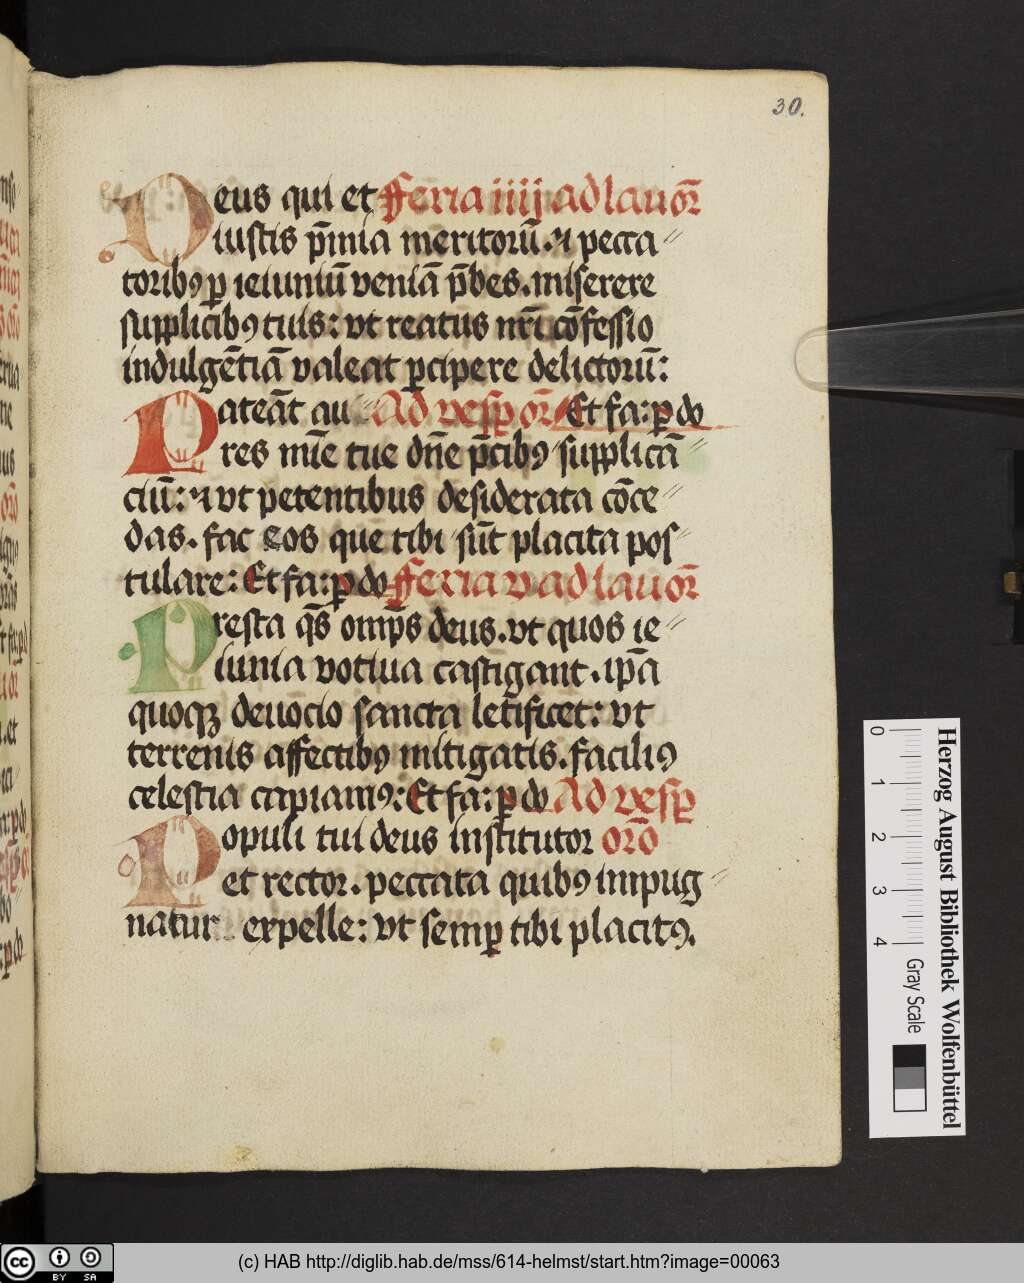 30.
Deus qui et fferia iiij ad lauor̄
iustis p̄mia meritorū. ⁊ pecca〃
toribꝯ ꝑ ieiuniū veniā p̄bes. miserere
supplicibꝯ tuis: vt reatus nr̄i cōfessio
indulgētiā valeat ꝑcipere delictorū:
Pateāt au Ad vesꝑ or̄ Et fa: ꝑ do
res mīe tue dn̄e p̄cibꝯ supplicā〃
ciū: ⁊ vt petentibus desiderata cōce〃
das. fac eos que tibi sūt placita pos〃
tulare: Et fa: ꝑ do fferia v ad lauor̄
Presta qs̄ omp̄s deus. vt quos ie〃
iunia votiua castigant. ip̄a
quoqꝫ deuocio sancta letificet: vt
terrenis affectibꝯ mitigatis. faciliꝯ
celestia capiamꝯ: Et fa: ꝑ do Ad vesꝑ
Populi tui deus institutor or̄o
et rector. peccata quibꝯ impug〃
natur expelle: vt semꝑ tibi placitꝯ.
0 1 2 3 4
Gray Scale
Herzog August Bibliothek Wolfenbüttel
cc BY SA
(c) HAB http://diglib.hab.de/mss/614-helmst/start.htm?image=00063